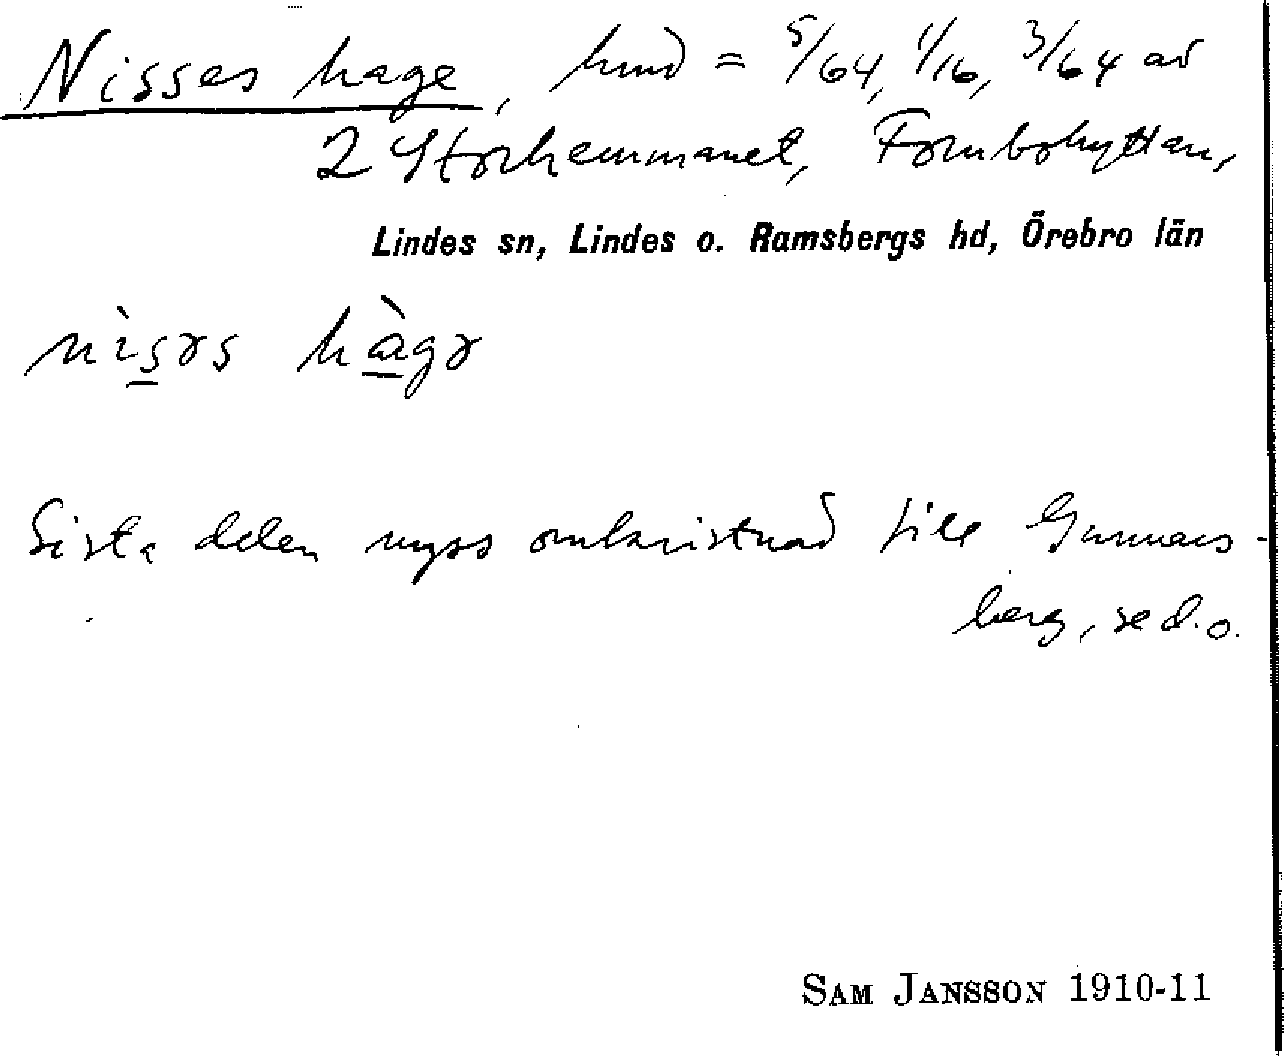 Nisses hage, hmd = 5/64, 1/16, 3/64 av
2 Storhemmanet, Fornbohyttan,
Lindes sn, Lindes o. Ramsbergs hd, Örebro län
nìsəs hàgə
Sista delen nyss omkristnad till Gunnars-
berg, se d.o.
SAM JANSSON 1910-11